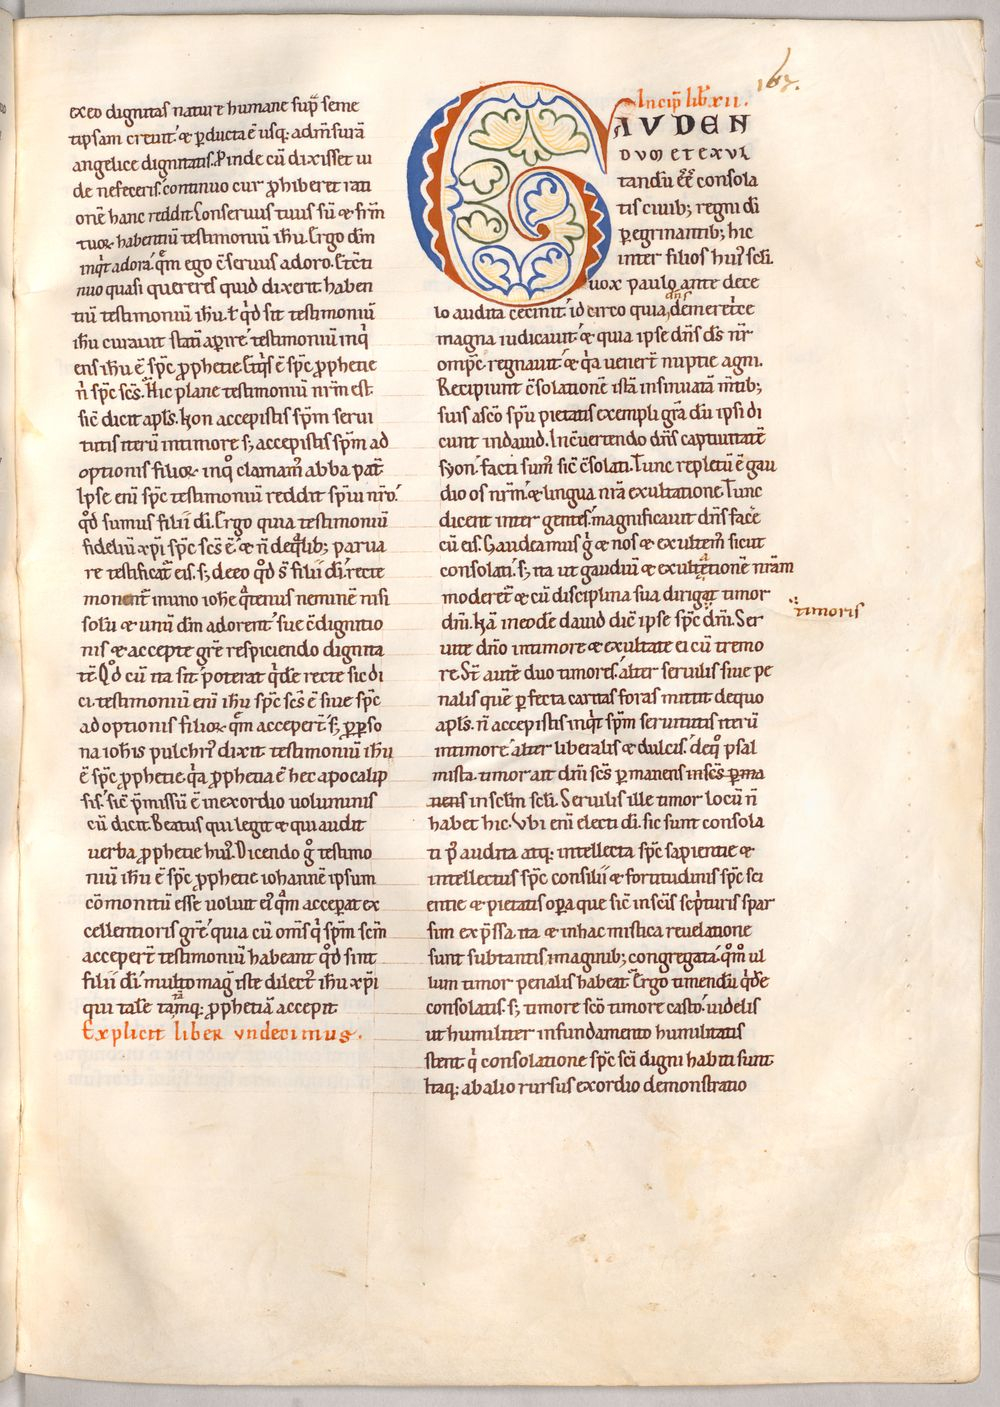 ex eo dignitas nature humane sup̄ seme
tipsam creuit ⁊ ꝑducta ē usq; ad m̄surā
angelice dignitatis. Proinde cū dixisset ui
de ne feceris. continuo cur ꝓhiberet rati
onē hanc reddit. Conseruus tuus sū ⁊ fr̄m
tuoꝝ habentiū testimoniū ihū. Ergo dm̄
inqͥt adora. qm̄ ego cōseruus adoro. Et cōti
nuo quasi quereres quid dixerit haben
tiū testimoniū ihū. ł qͥd sit testimoniū
ihū curauit statī aperire testimoniū inqͥ
ens ihū ē sp̄c ꝓphetie. Etqͥs ē sp̄c ꝓphetie
n̄ sp̄c sc̄s. Hic plane testimoniū nr̄m est.
sic̄ dicit apl̄s. Non accepistis sp̄m serui
tutis iterū in timore s; accepistis sp̄m ad
optionis filioꝝ inqͦ clamam᷒ abba pat̄
Ipse eni᷒ sp̄c testimoniū reddit sp̄ui nr̄o.
qd̄ sumus filii dī. Ergo quia testimoniū
fideliū xp̄i sp̄c sc̄s ē. ⁊ n̄ de qͥlib; parua
re testificat̄ eis. s; de eo qd̄ s̄ filii dī. recte
monent̄ in uno iohe qͣtenus neminē nisi
solū ⁊ unū dm̄ adorent. siue c̄dignitio
nis ⁊ accepte gr̄e respiciendo dignita
tē. Qd̄ cū ita sit poterat qͥde recte sic di
ci. testimoniū eni᷒ ihū sp̄c sc̄s ē siue sp̄c
adoptionis filioꝝ qm̄ acceper̄t. s; ꝓ ꝑso
na ioh̄is pulchri᷒ dixit testimoniū ihū
ē sp̄c ꝓphetie. qͣ ꝓphetia ē hec apocalip
sis. sic̄ p̄missū ē in exordio uoluminis
cū dicit. Beatus qui legit ⁊ qui audit
uerba ꝓphetie hui᷒. Dicendo g̊ testimo
niū ihū ē sp̄c ꝓphetie iohannē ipsum
cōmonitū esse uoluit ei᷒ qm̄ acceperat ex
cellentioris gr̄e. quia cū om̄s qͥ sp̄m sc̄m
acceper̄t testimoniū habeant qd̄ sint
filii dī. multo mag᷒ iste dilect᷒ ihū xp̄i
qui tale tāmq; ꝓphetiā accepit
Explicit liber vndecimus.
167.
Incip̄ lib. xii.
GAUDEN
DVM ET EXVL
tandū ēē consola
tis ciuib; regni dī
ꝑegrinantib; hic
inter filios hui᷒ sc̄li.
uox paulo ante dece
lo audita cecinit. idcirco quia dn̄s de meret̄ce
magna iudicauit. ⁊ quia ipse dn̄s ds̄ nr̄
omp̄c regnauit. ⁊ qͣ uener̄t nuptie agni.
Recipiunt c̄solationē istā insinuatā m̄tib;
suis a sc̄o sp̄u pietatis exempli gr̄a dū ipsi di
cunt in dauid. In c̄uertendo dn̄s captiuitatē
syon. facti sum᷒ sic̄ c̄solati. Tunc repletū ē gau
dio os nr̄m. ⁊ lingua nr̄a exultatione. Tunc
dicent inter gentes. magnificauit dn̄s fac̄e
cū eis. Gaudeamus g̊ ⁊ nos ⁊ exultem᷒ sicut
consolati. s; ita ut gaudiū ⁊ exultationē nr̄am
moderet̄ ⁊ cū disciplina sua dirigat timor
timoris
dn̄i. Nā in eodē dauid dic̄ ipse sp̄c dn̄i. Ser
uite dn̄o in timore ⁊ exultate ei cū tremo
re. St̄ autē duo timores. alter seruilis siue pe
nalis quē ꝑfecta caritas foras mittit de quo
apl̄s. n̄ accepistis inqͥt sp̄m seruitutis iterū
in timore. alter liberalis ⁊ dulcis. de qͦ psal
mista. timor ait dn̄i sc̄s ꝑmanens in sc̄s ꝑma
nens in sclm̄ scl̄i. Seruilis ille timor locū n̄
habet hic. Vbi eni᷒ electi dī. sic sunt consola
ti p᷒ audita atq; intellecta sp̄c sapientie ⁊
intellectus sp̄c consilii ⁊ fortitudinis sp̄c sci
entie ⁊ pietatis oꝑa que sic̄ in sc̄is sc̄pturis spar
sim exp̄ssa. ita ⁊ in hac mistica reuelatione
sunt sub tantis imaginib; congregata. qͦm᷒ ul
lum timor penalis habeat. Ergo timendū qͥde
consolatis. s; timore sc̄o timore casto. uidelis
ut humiliter in fundamento humilitatis
stent. qͥ consolatione sp̄c sc̄i digni habiti sunt
Itaq; ab alio rursus exordio demonstratio